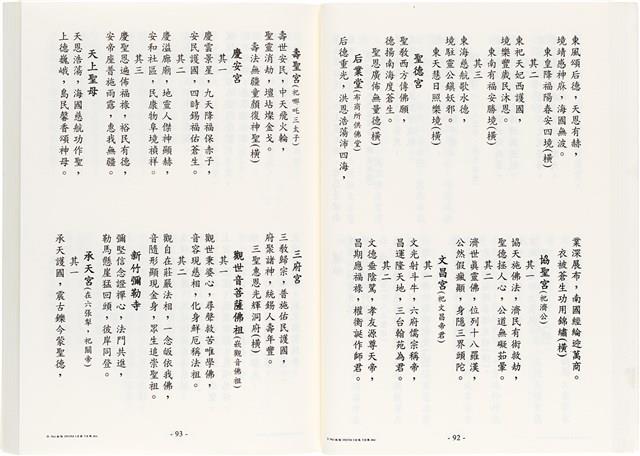 東風頌后德，天恩有赫，
境靖感神庥，海國無波。
其二
東皇降福陽春安四境(橫)
東杞天妃西護國，
境樂豐歲民沐恩。
東南有福安勝境(橫)
其三
東海慈航歌水德，
境駐靈公鎮妖邪。
東天慧日照樂境(橫)
聖德宮
聖敎西方傳佛願，
德揚南海度蒼生。
聖恩廣佈無量德(橫)
后業堂(布商所供佛堂)
后德重光，洪恩浩蕩沛四海，
業深展布，南國經綸迎萬商。
衣被蒼生功用錦繡(橫)
協聖宮(祀濟公)
其一
協天施佛法，濟民有術救劫，
聖德拯人心，公道無礙茹葷。
其二
濟世眞靈佛，位列十八羅漢，
公然假瘋顚，身隨三界頭陀。
文昌宮(祀文昌帝君)
其一
文光射斗牛，六府儒宗稱帝，
昌運隆天地，三台翰苑為君。
其二
文德垂陰騭，孝友源尊天帝，
昌期應福祿，權衡誕作師君。
- 92 -
壽聖宮(祀哪吒三太子)
壽世安民，中天飛火輪，
聖靈消劫，壇坫燦金戈。
壽法無疆童顏復神聖(橫)
慶安宮
其一
慶雲景星，九天降福保赤子，
安民護國，四時錫佑蒼生。
其二
慶溢廊廟，地靈人傑神顯赫，
安和社區，民康物阜境禎祥。
其三
慶聖恩遍佈福祿，裕民有德，
安帝座普施雨露，惠我無疆。
天上聖母
天恩浩蕩，海國慈航功作聖，
上德巍峨，島民馨香頌神母。
三府宮
三敎歸宗，普施佑民護國，
府聚諸神，統錫人壽年豐。
三聖惠恩光輝洞府(橫)
觀世音菩薩佛祖(嵌觀音佛祖)
其一
觀世秉婆心，尋聲救苦唯學佛，
音容現慈相，化身解厄稱法祖。
其二
觀自在莊嚴法相，一念皈依我佛，
音隨形顯現金身，眾生追崇聖祖。
新竹彌勒寺
彌堅信念證禪心，法門共進，
勒馬懸崖猛回頭，彼岸同登。
承天宮(在六張犁，祀關帝)
其一
承天護國，震古鑠今蒙聖德，
- 93 -